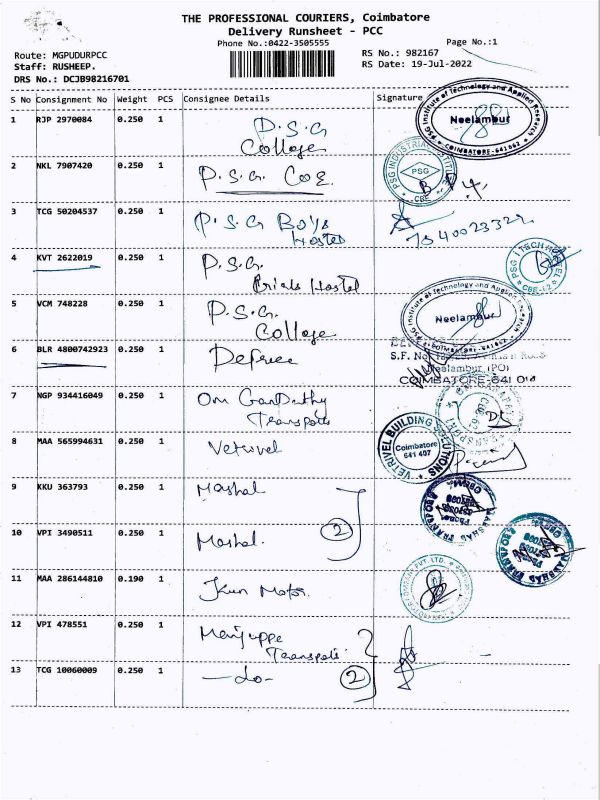 THE PROFESSIONAL COURIERS, Coimbatore
Delivery Runsheet - PCC
Phone No.:0422-3505555
Page No.:1
Route: MGPUDURPCC
Staff: RUSHEEP.
DRS No.: DCJB98216701
RS No.: 982167
RS Date: 19-Jul-2022
S No Consignment No Weight PCS Consignee Details Signature
1 RJP 2970084 0.250 1 P.S.G College
PSG Institute of Technology and Applied Research Neelambur COIMBATORE-641062
2 NKL 7907420 0.250 1 P.S.G. COE
PSG INDUSTRIAL INSTITUTE PSG CBE
3 TCG 50204537 0.250 1 P.S.G Boys Hostel
4 KVT 2622019 0.250 1 P.S.G. Hostel
PSG ITECH HOSTEL CBE-62
5 VCM 748228 0.250 1 P.S.G. College
PSG Institute of Technology and Applied Research Neelambur COIMBATORE-641062
6 BLR 4800742923 0.250 1
S.F. No
Neelambur (PO)
COIMBATORE-641 014
7 NGP 934416049 0.250 1 Om Transports
8 MAA 565994631 0.250 1 Vetrivel
VETRIVEL BUILDING SOLUTIONS Coimbatore 641 407
9 KKU 363793 0.250 1 Marshal
10 VPI 3490511 0.250 1 Marshal. 2
11 MAA 286144810 0.190 1 Motor
12 VPI 478551 0.250 1 Transports
13 TCG 10060009 0.250 1 —do— 2